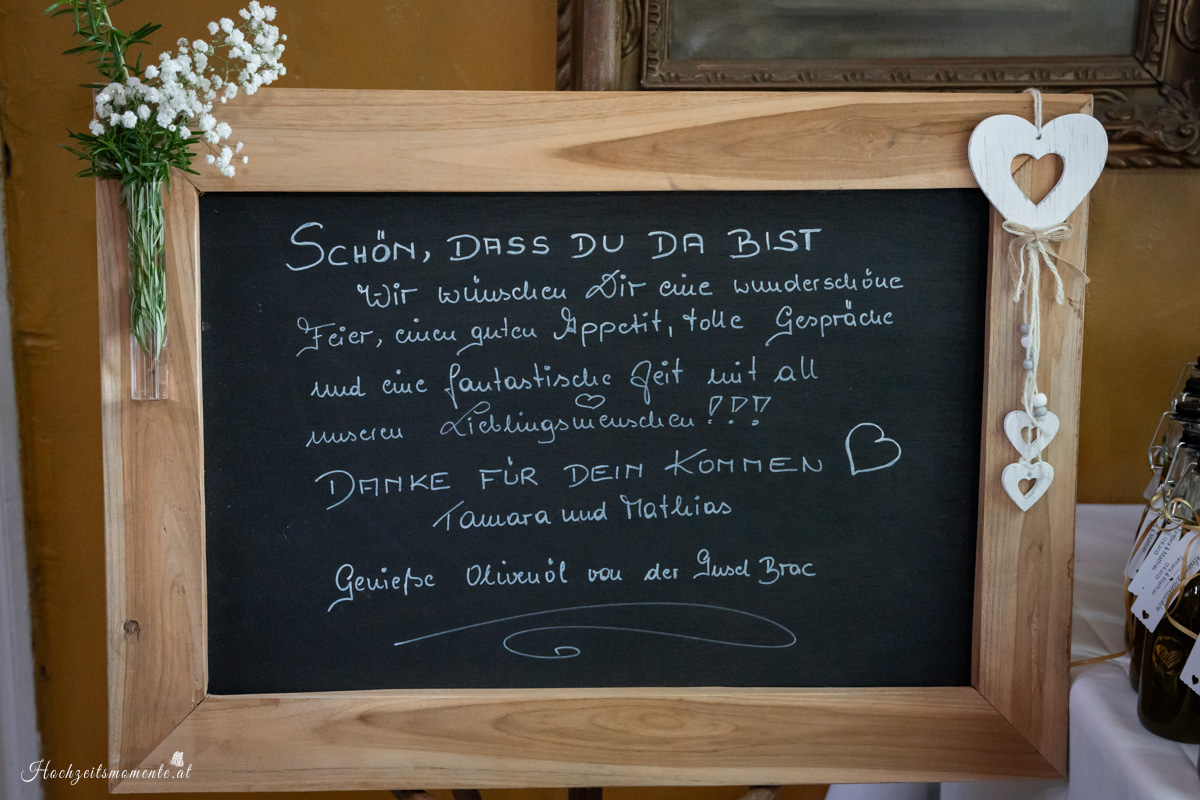 SCHÖN, DASS DU DA BIST
Wir wünschen Dir eine wunderschöne
Feier, einen guten Appetit, tolle Gespräche
und eine fantastische Zeit mit all
unseren Lieblingsmenschen!!!
DANKE FÜR DEIN KOMMEN
Tamara und Mathias
Genieße Olivenöl von der Insel Brac
Hochzeitsmomente.at